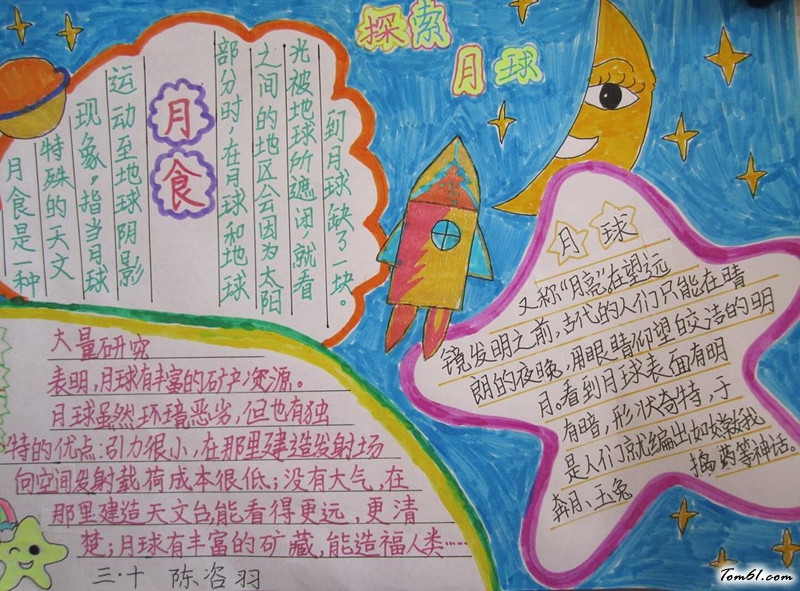 探索
月球
月食
月食是一种
特殊的天文
现象，指当月球
运动至地球阴影
部分时，在月球和地球
之间的地区会因为太阳
光被地球所遮闭，就看
到月球缺了一块。
月球
又称“月亮”在望远
镜发明之前，古代的人们只能在晴
朗的夜晚，用眼睛仰望皎洁的明
月。看到月球表面有明
有暗，形状奇特，于
是人们就编出如嫦娥
奔月、玉兔 捣药等神话。
大量研究
表明，月球有丰富的矿产资源。
月球虽然环境恶劣，但也有独
特的优点：引力很小，在那里建造发射场
向空间发射载荷成本很低；没有大气，在
那里建造天文台能看得更远，更清
楚；月球有丰富的矿藏，能造福人类……
三·十 陈咨羽
Tom61.com